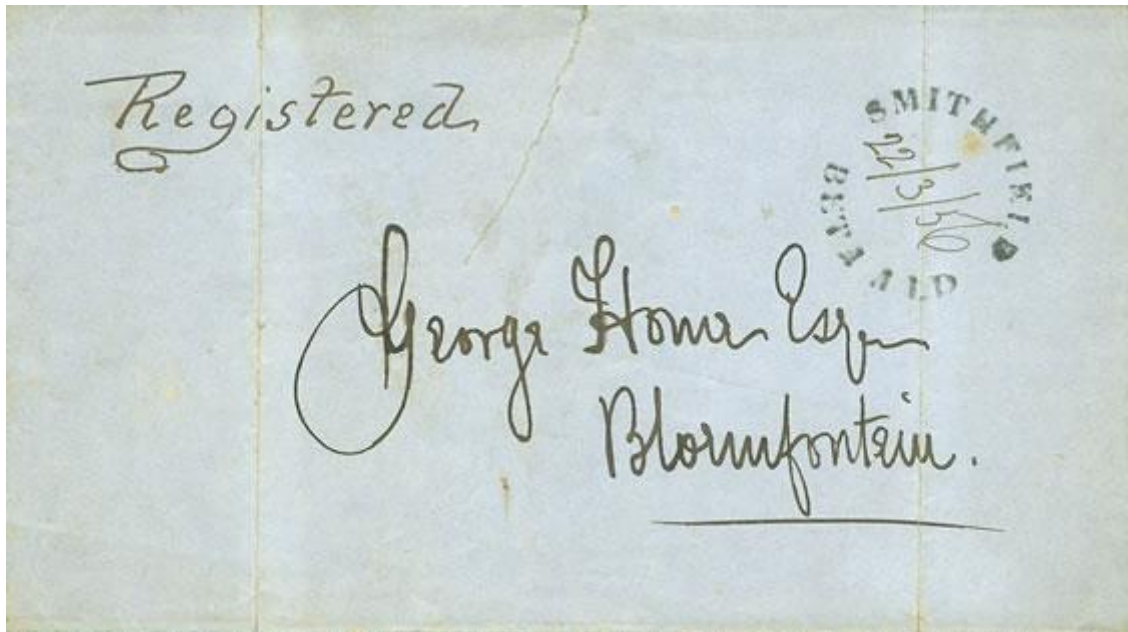 Registered
SMITHFIELD
BETAALD
22/3/56
George Home Esqr
Bloemfontein.